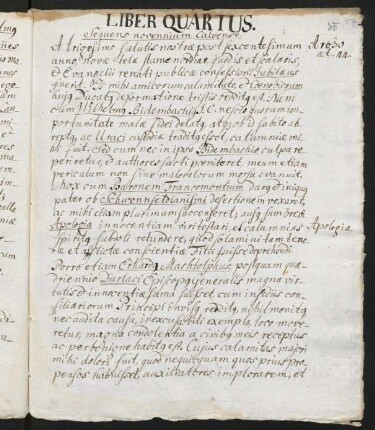 LIBER QUARTUS.
Sequens novennium Calvense
A trigesimo salutis nostræ post sexcentesimum
anno, novæ telæ stamen ordiar, sudis et salaris,
et Evangelii renati publicæ confessionis Jubilæus
A 1630
æt. 44.
quibus mihi amicorum calamitate, et
aliquot Ducatus deformatione tristis reddit est. Nam
cum Wilhelmus Bidembachius
portunitate malæ fidei delatus, atque subito ab
reptus, ac Uraci custodiæ traditus esset, calumniæ mi
hi fuit. Sed cum nec in ipso Bidembachio culpa re
periretur, et authores facti pœniteret meum etiam
periculum non sine malevolorum morsu evanuit.
Mox cum Baronem
pater ob Schwenkfeldianismi desertionem vexaret,
ac mihi etiam plurimum succenseret, ausus sum brevi
Apologia innocentiam viri testari, et calumnias
Apologia.
spiritus subdoli retundere, quod solamini tam tene
ræ et afflictæ conscientiæ Filii fuisse deprehendi.
Porro etiam Erhardus Machtolphus, postquam qua
driennio Durlaci Episcopus generalis magna vir
tutis et innocentiæ fama fuisset cum insidiis con
siliariorum Principi invisus redditus, nihil monitus
nec audita causa, inexcusabili exemplo, loco move
retur, magna condolentia a civibus meis receptus
ac perbenigne habitus est. Cujus calamitas majori
mihi dolori fuit, quod nequicquam quos prius pro
pensos habuisset, auxiliatores implorarem, et